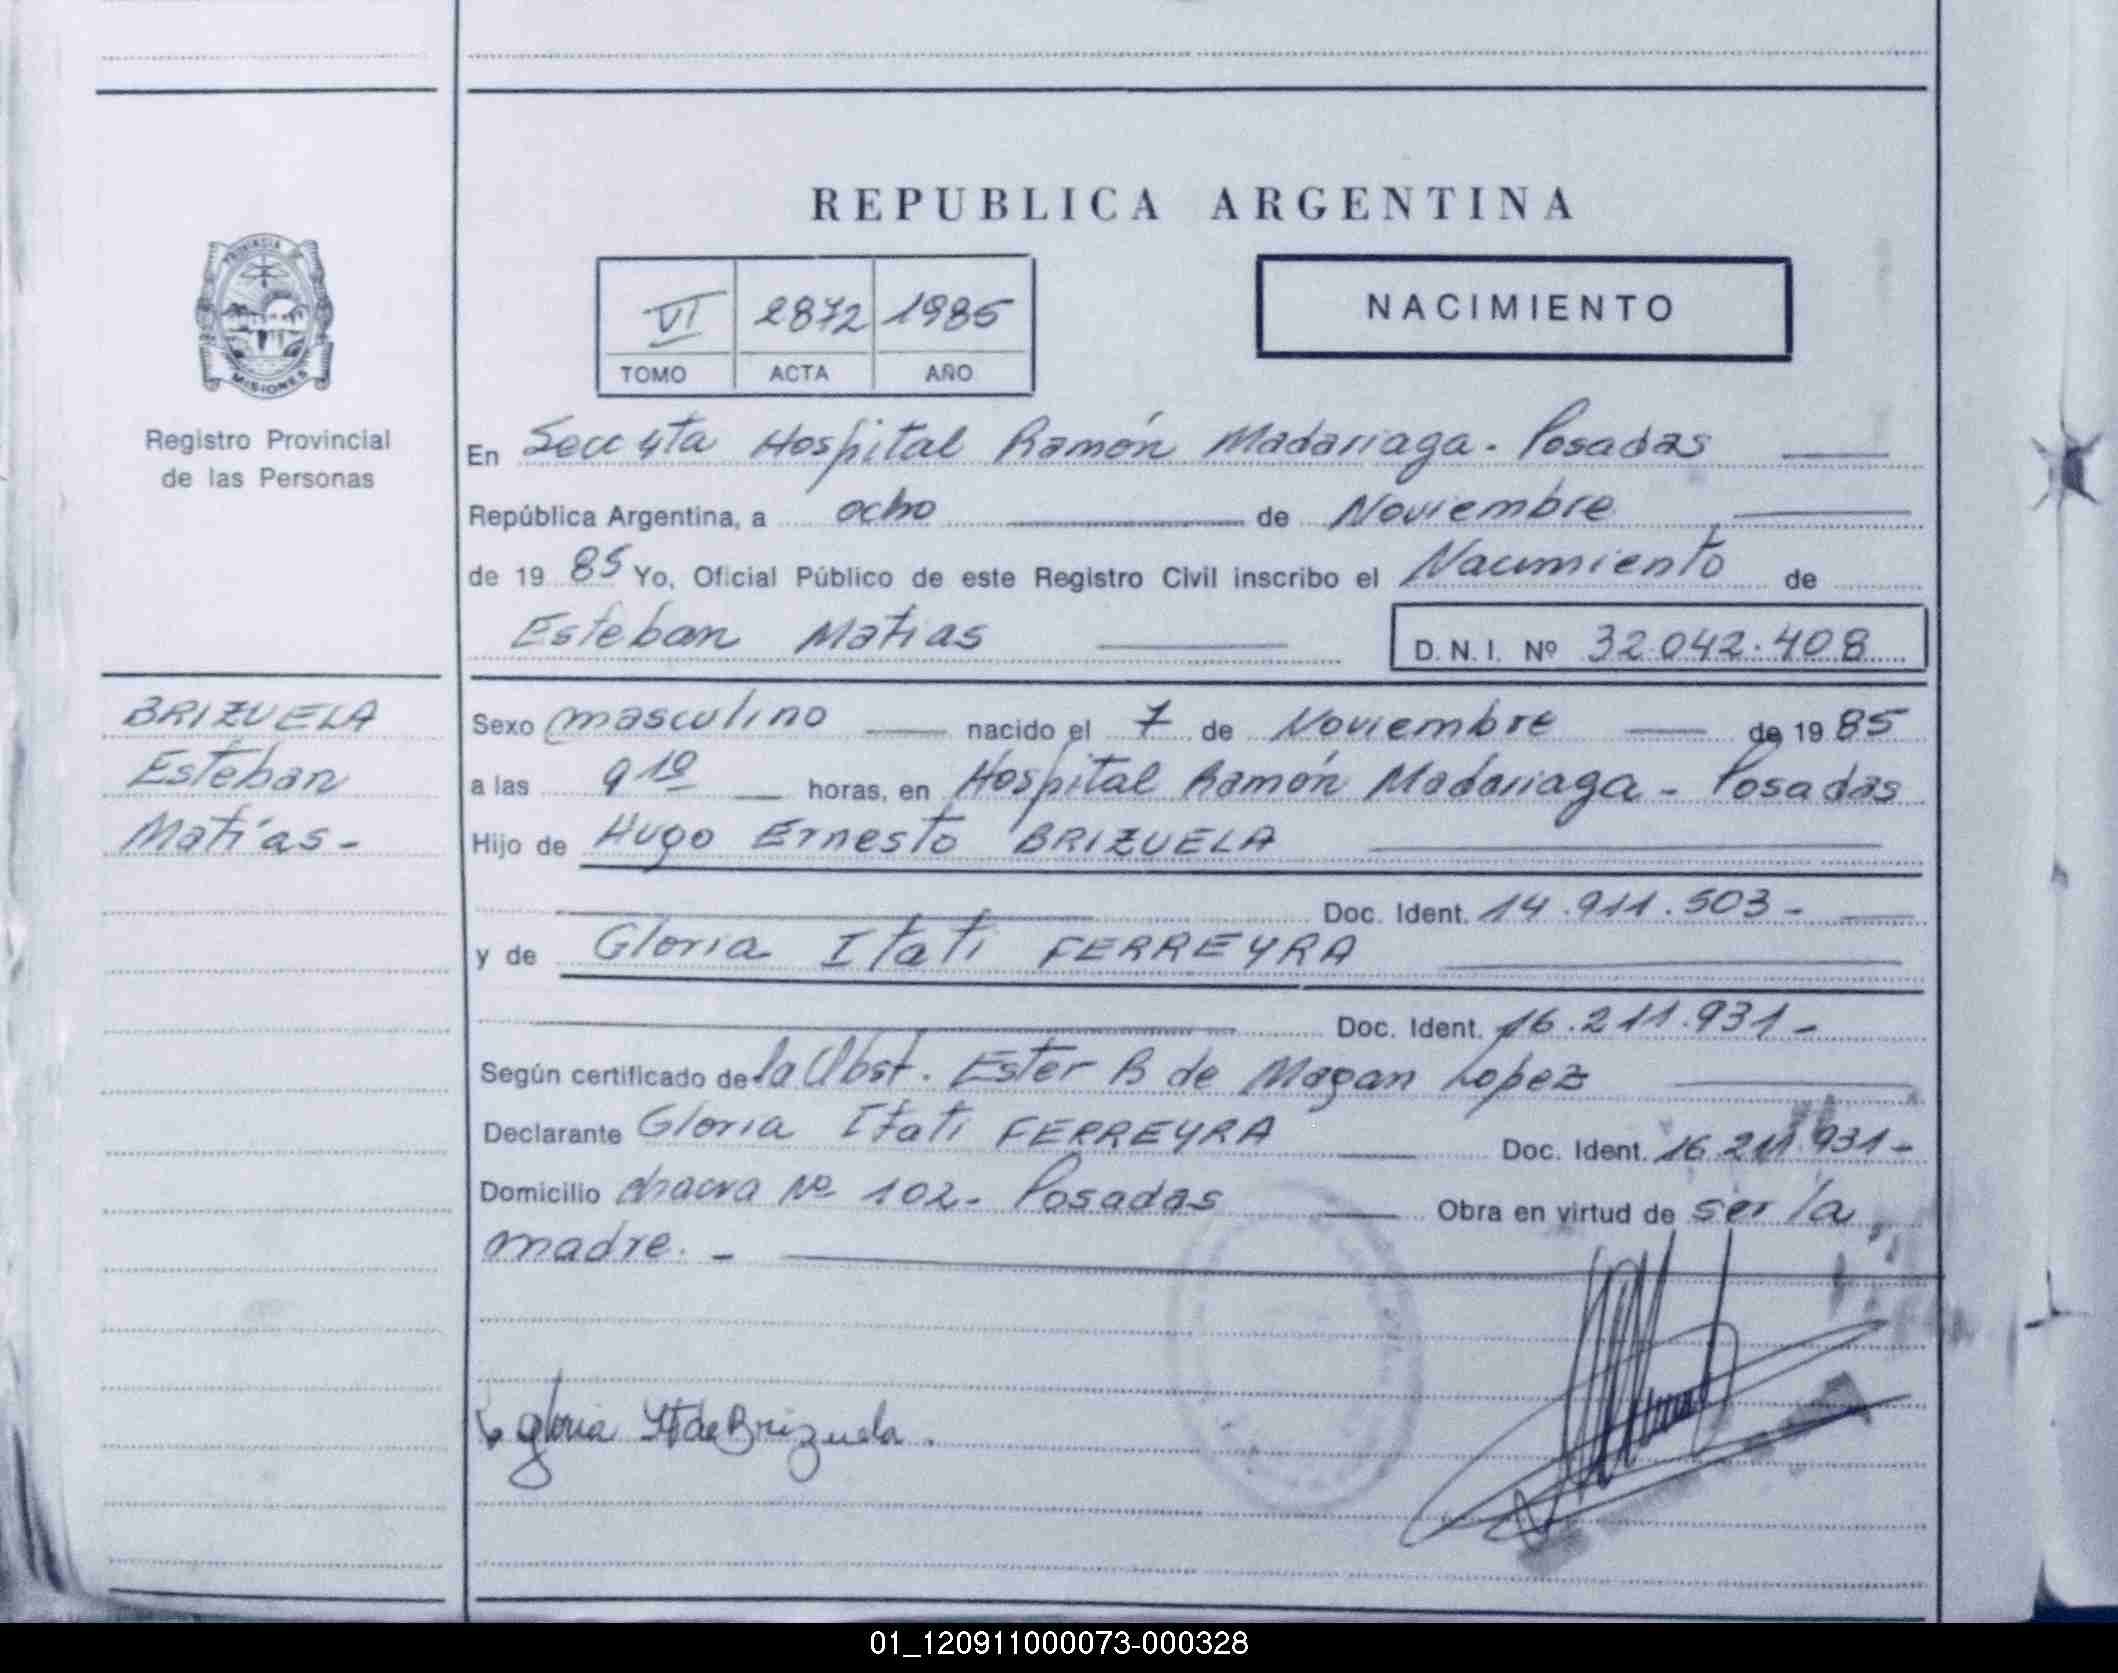 REPUBLICA ARGENTINA
PROVINCIA DE
MISIONES
Registro Provincial
de las Personas
VI 2872 1985
TOMO ACTA AÑO
NACIMIENTO
En Secc 4ta Hospital Ramón Madariaga - Posadas
República Argentina, a ocho de Noviembre
de 1985 Yo, Oficial Público de este Registro Civil inscribo el Nacimiento de
Esteban Matias D.N.I. Nº 32.042.408
BRIZUELA
Esteban
Matías -
Sexo masculino nacido el 7 de Noviembre de 1985
a las 9 10 horas, en Hospital Ramón Madariaga - Posadas
Hijo de Hugo Ernesto BRIZUELA
Doc. Ident. 14.911.503 -
y de Gloria Itati FERREYRA
Doc. Ident. 16.211.931 -
Según certificado de la Obst. Ester B de Magan Lopez
Declarante Gloria Itati FERREYRA Doc. Ident. 16.211.931 -
Domicilio chacra Nº 102 - Posadas Obra en virtud de ser la
madre. -
Gloria It de Brizuela.
01_120911000073-000328